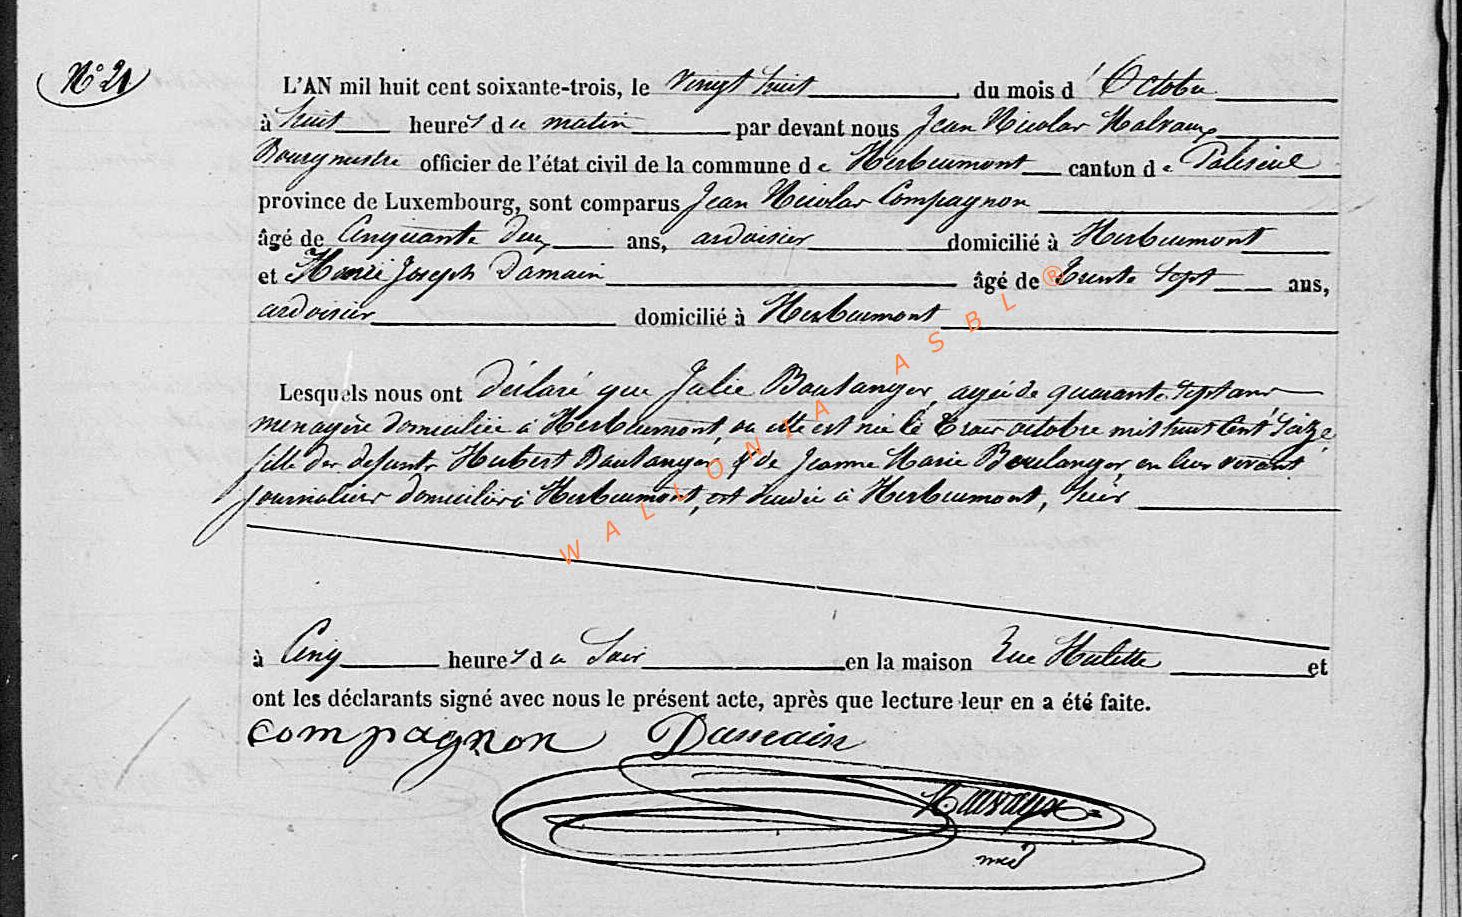 N° 21
L'AN mil huit cent soixante-trois, le vingt huit du mois d'Octobre
à huit heures du matin par devant nous Jean Nicolas Malvaux
Bourgmestre officier de l'état civil de la commune de Herbeumont canton de Paliseul
province de Luxembourg, sont comparus Jean Nicolas Compagnon
âgé de Cinquante deux ans, ardoisier domicilié à Herbeumont
et Henri Joseph Damain âgé de trente sept ans,
ardoisier domicilié à Herbeumont
Lesquels nous ont déclaré que Julie Boulanger, agée de quarante sept ans
menagère domiciliée à Herbeumont, ou elle est née le trois octobre mil huit cent seize
fille des defunts Hubert Boulanger & de Jeanne Marie Boulanger en leur vivant
journaliers domiciliés à Herbeumont, est décédée à Herbeumont, hier
à Cinq heures du Soir en la maison rue Hulette et
ont les déclarants signé avec nous le présent acte, après que lecture leur en a été faite.
Compagnon Damain
Malvaux
WALLONIA ASBL ®